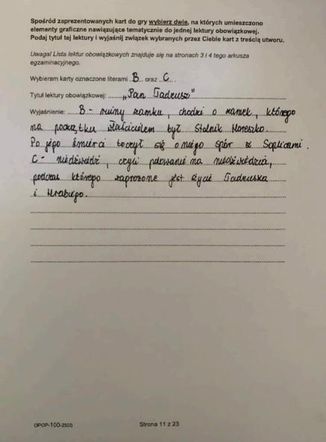 Spośród zaprezentowanych kart do gry wybierz dwie, na których umieszczono
elementy graficzne nawiązujące tematycznie do jednej lektury obowiązkowej.
Podaj tytuł tej lektury i wyjaśnij związek wybranych przez Ciebie kart z treścią utworu.
Uwaga! Lista lektur obowiązkowych znajduje się na stronach 3 i 4 tego arkusza
egzaminacyjnego.
Wybieram karty oznaczone literami B oraz C.
Tytuł lektury obowiązkowej: „Pan Tadeusz"
Wyjaśnienie: B - ruiny zamku, chodzi o zamek, którego
na początku właścicielem był Stolnik Horeszko.
Po jego śmierci toczył się o niego spór z Soplicami.
C - niedźwiedź, czyli polowanie na niedźwiedzia,
podczas którego zagrożone jest życie Tadeuszka
i Hrabiego.
OPOP-100-2505
Strona 11 z 23